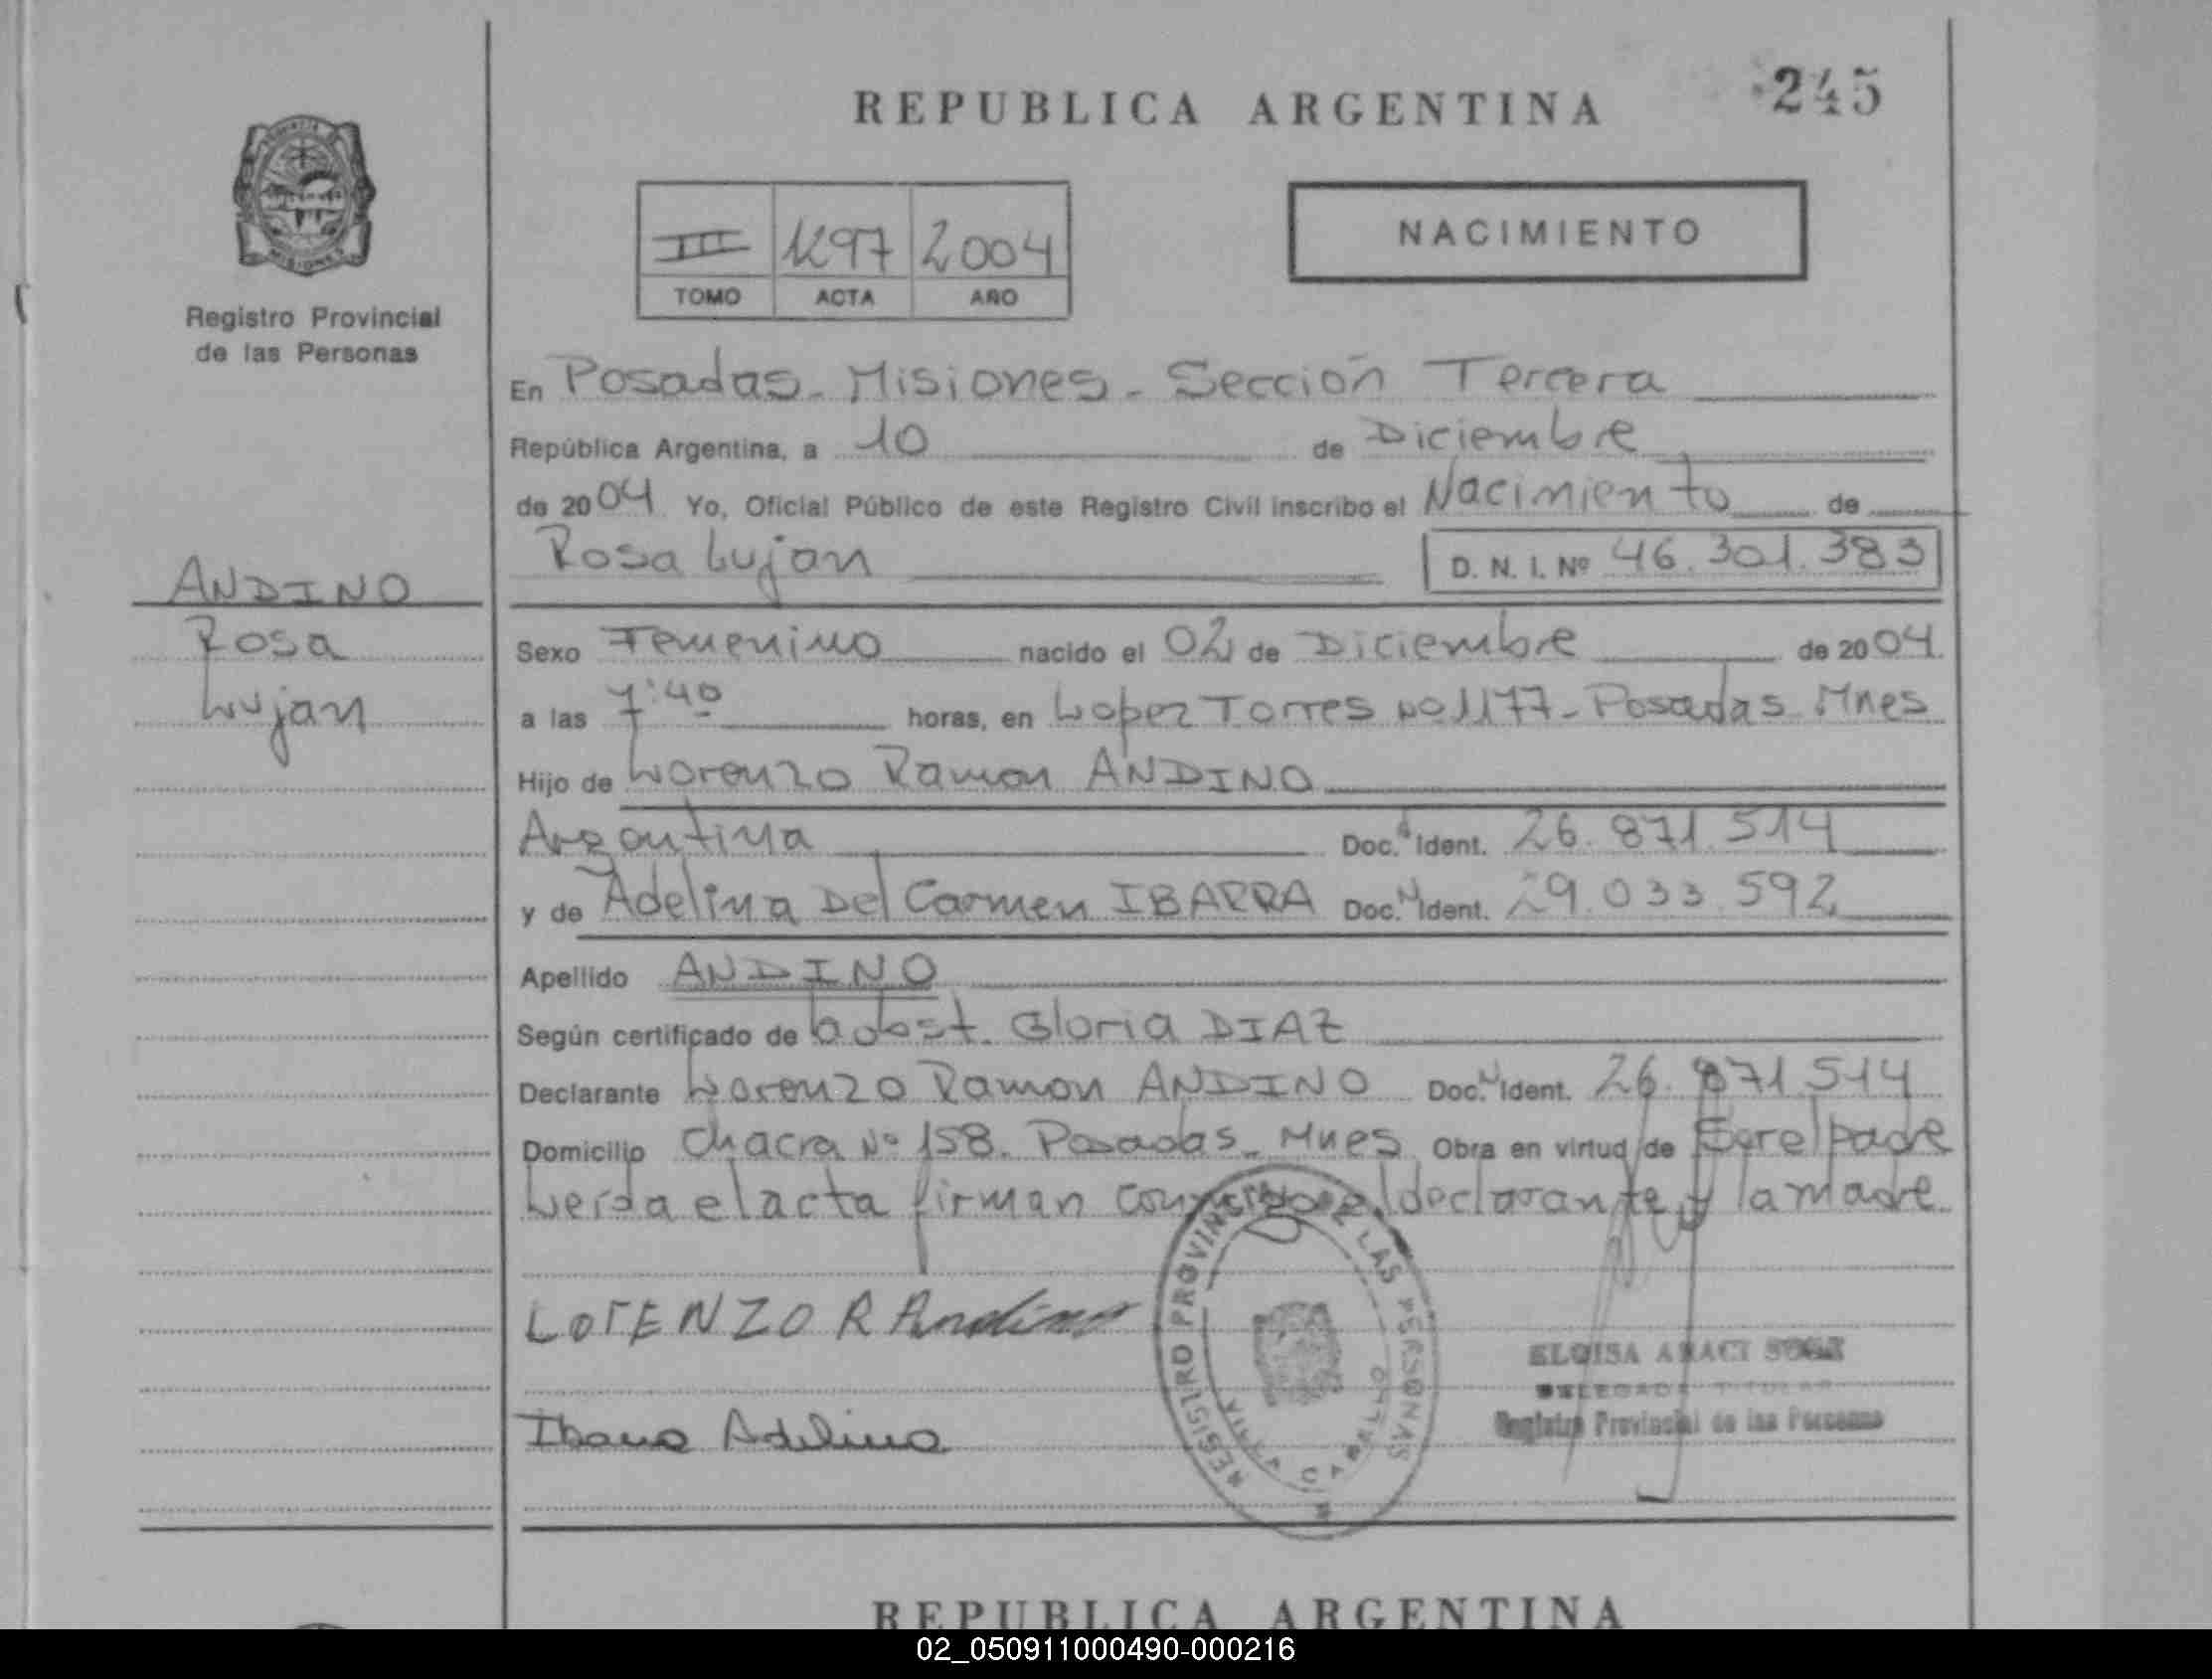 REPUBLICA ARGENTINA
245
PROVINCIA DE
MISIONES
Registro Provincial
de las Personas
III 1297 2004
TOMO ACTA AÑO
NACIMIENTO
En Posadas - Misiones - Sección Tercera
República Argentina, a 10 de Diciembre
de 2004 Yo, Oficial Público de este Registro Civil inscribo el Nacimiento de
Rosa Lujan D. N. I. Nº 46.301.383
ANDINO
Rosa
Lujan
Sexo Femenino nacido el 02 de Diciembre de 2004
a las 7:40 horas, en Lopez Torres Nº 1177 - Posadas Mnes
Hijo de Lorenzo Ramon ANDINO
Argentina Doc. Ident. 26.871.514
y de Adelina Del Carmen IBARRA Doc. Ident. 29.033.592
Apellido ANDINO
Según certificado de la obst. Gloria DIAZ
Declarante Lorenzo Ramon ANDINO Doc. Ident. 26.871.514
Domicilio Chacra Nº 158. Posadas - Mnes Obra en virtud de Ser el padre
Leída el acta firman conmigo el declarante y la madre.
LorENZO R Andino
Ibarra Adelina
REGISTRO PROVINCIAL DE LAS PERSONAS
ELOISA ARACI
DELEGADA TITULAR
Registro Provincial de las Personas
REPUBLICA ARGENTINA
02_050911000490-000216